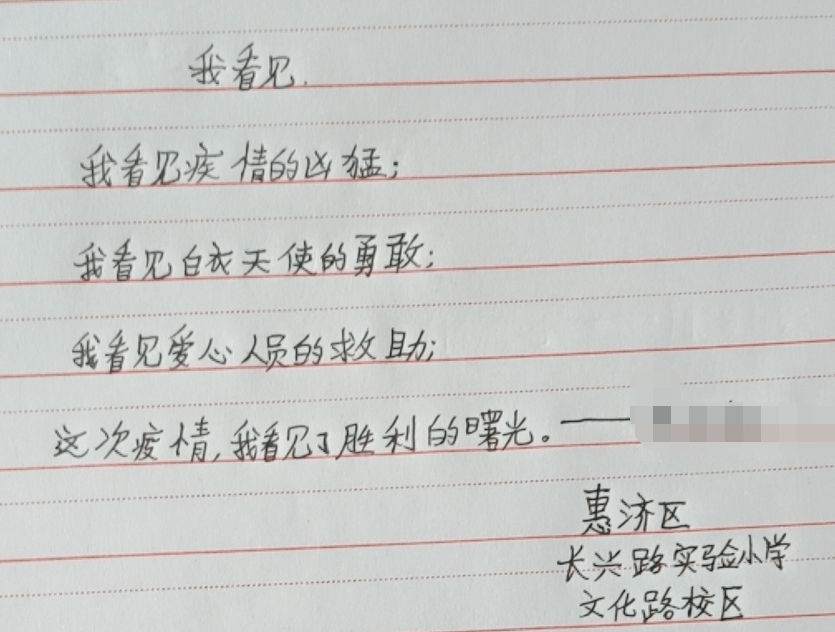 我看见.
我看见疾情的凶猛；
我看见白衣天使的勇敢；
我看见爱心人员的救助；
这次疫情,我看见了胜利的曙光。——
惠济区
长兴路实验小学
文化路校区